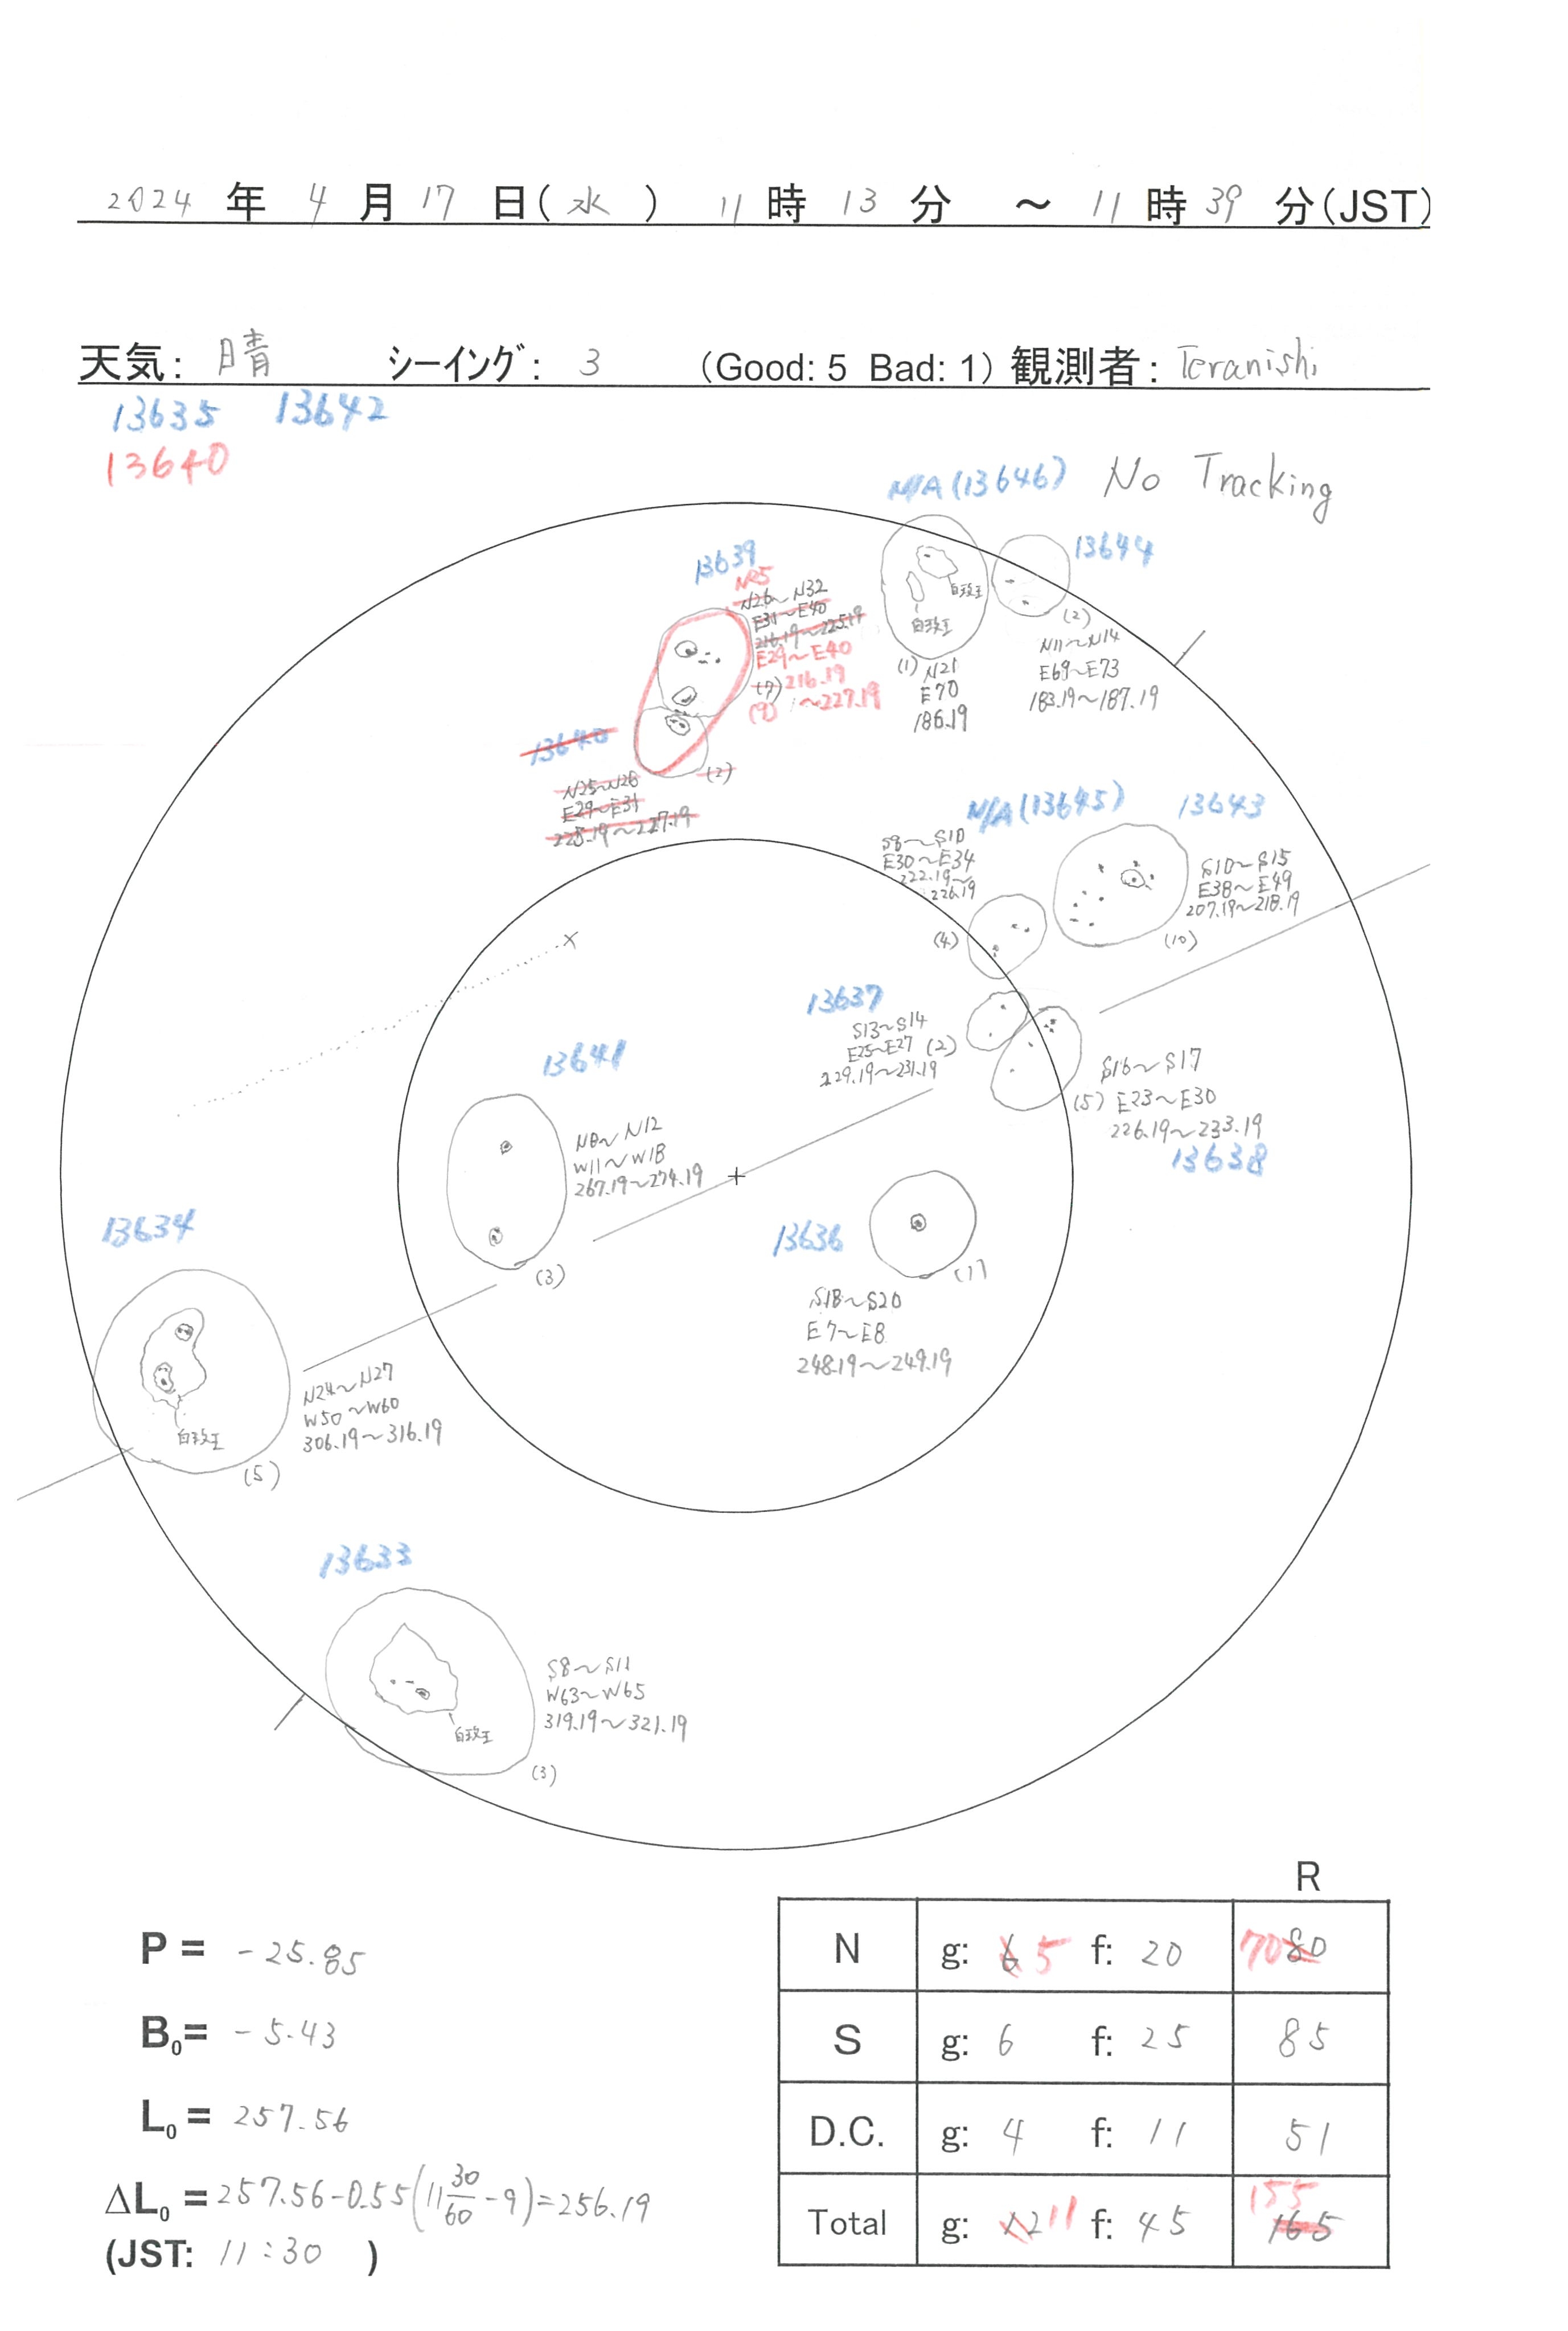 2024 年 4 月 17 日(水) 11 時 13 分 ～ 11 時 39 分(JST)
天気: 晴 シーイング: 3 (Good: 5 Bad: 1) 観測者: Teranishi
13635 13642
13640
N/A(13646) No Tracking
13644
13639
N25
N26~N32
E31~E40
216.19~225.19
E29~E40
(7) 216.19
(9) ~227.19
白斑
白斑
(1) N21
E70
186.19
(2)
N11~N14
E69~E73
183.19~187.19
13640
(2)
N25~N26
E29~E31
225.19~227.19
N/A(13645) 13643
S8~S10
E30~E34
222.19~
226.19
(4)
S10~S15
E38~E49
207.19~218.19
(10)
13637
S13~S14
E25~E27 (2)
229.19~231.19
S16~S17
(5) E23~E30
226.19~233.19
13638
13641
N8~N12
W11~W18
267.19~274.19
(3)
13636
(1)
S18~S20
E7~E8
248.19~249.19
13634
N24~N27
W50~W60
306.19~316.19
(5)
13633
S8~S11
W63~W65
319.19~321.19
(3)
R
N g: 6 5 f: 20 70 80
S g: 6 f: 25 85
D.C. g: 4 f: 11 51
Total g: 12 11 f: 45 155 165
P = -25.85
B0= -5.43
L0 = 257.56
ΔL0 = 257.56-0.55(11 30/60 -9)=256.19
(JST: 11:30 )